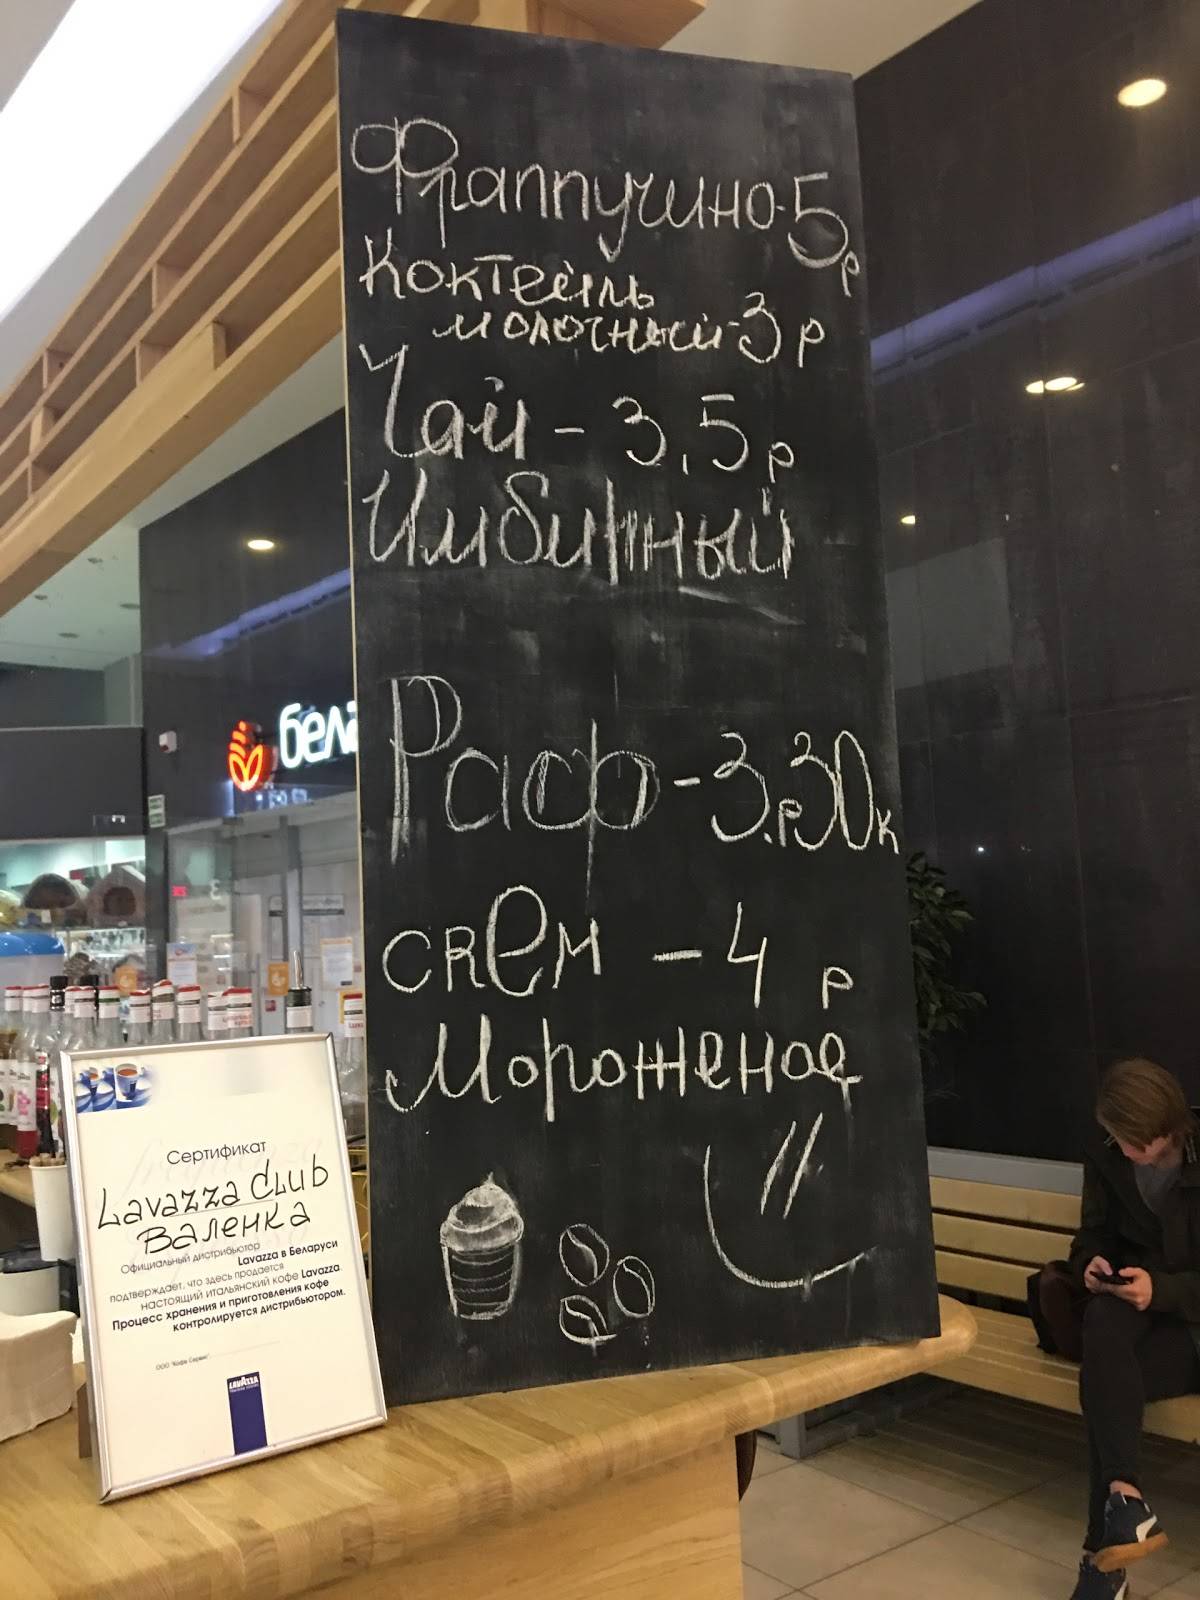 Фраппучино-5р
Коктейль
молочный-3р
Чай - 3,5р
Имбирный
Раф - 3.р30к
CREM - 4 р
Мороженое
бела
Сертификат
Lavazza Club
Валенка
Официальный дистрибьютор
Lavazza в Беларуси
подтверждает, что здесь продается
настоящий итальянский кофе Lavazza.
Процесс хранения и приготовления кофе
контролируется дистрибьютором.
ООО "Кофе Сервис"
LAVAZZA